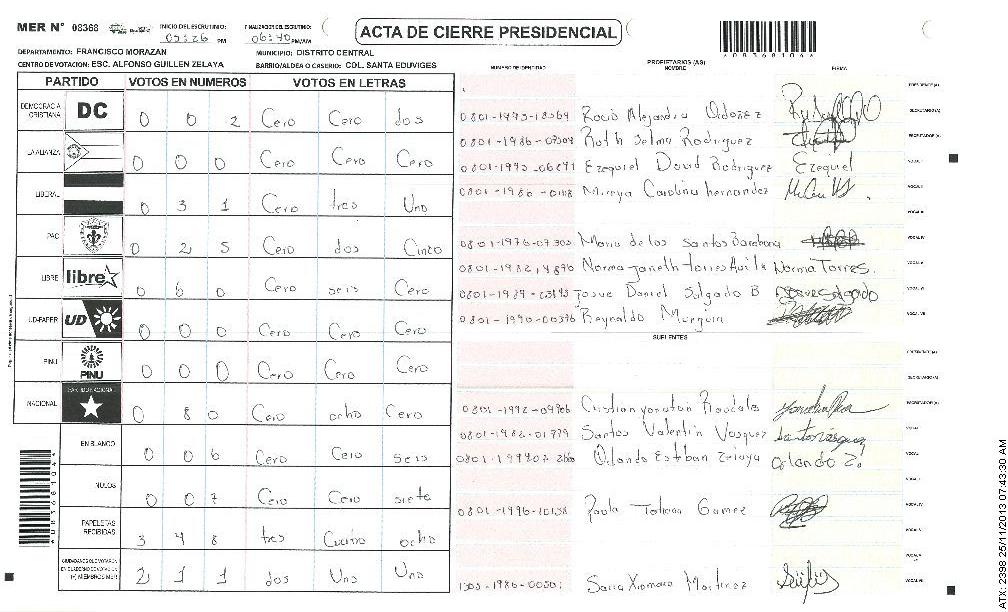 MER N° 08368 INICIO DEL ESCRUTINIO: 05:26 PM FINALIZACION DEL ESCRUTINIO: 06:40 PM/AM
ACTA DE CIERRE PRESIDENCIAL
*08368104*
DEPARTAMENTO: FRANCISCO MORAZAN MUNICIPIO: DISTRITO CENTRAL
CENTRO DE VOTACION: ESC. ALFONSO GUILLEN ZELAYA BARRIO/ALDEA O CASERIO: COL. SANTA EDUVIGES
PARTIDO VOTOS EN NUMEROS VOTOS EN LETRAS
DEMOCRACIA CRISTIANA DC 0 0 2 Cero Cero dos
LA ALIANZA 0 0 0 Cero Cero Cero
LIBERAL 0 3 1 Cero tres Uno
PAC 0 2 5 Cero dos Cinco
LIBRE libre 0 6 0 Cero seis Cero
UD-FAPER UD 0 0 0 Cero Cero Cero
PINU PINU 0 0 0 Cero Cero Cero
NACIONAL PARTIDO NACIONAL 0 8 0 Cero ocho Cero
EN BLANCO 0 0 6 Cero Cero seis
NULOS 0 0 7 Cero Cero siete
PAPELETAS RECIBIDAS 3 4 8 tres ocho
2 1 1 dos Uno Uno
NUMERO DE IDENTIDAD PROPIETARIOS (AS) NOMBRE FIRMA
PRESIDENTE(A)
Rocio Alejandra Ordoñez SECRETARIO(A)
Ruth Selma Rodriguez ESCRUTADOR(A)
Ezequiel David Rodriguez Ezequiel VOCAL I
Mireya Carolina hernandez VOCAL II
VOCAL III
0801-1976-07305 Maria de los Santos Barahona VOCAL IV
Norma Janeth torres Norma Torres. VOCAL V
Josue Daniel Salgado B Josue Salgado VOCAL VI
0801-1990-00396 Reynaldo VOCAL VII
SUPLENTES
PRESIDENTE(A)
SECRETARIO(A)
Cristian yonatan ESCRUTADOR(A)
0801-1982-01779 Santos Valentin Vasquez
Orlando Esteban Zelaya Orlando Z.
0801-1996-10138 Paola Gomez
Xiomara Martinez
ATX: 2398 25/11/2013 07:43:30 AM
*08368104*